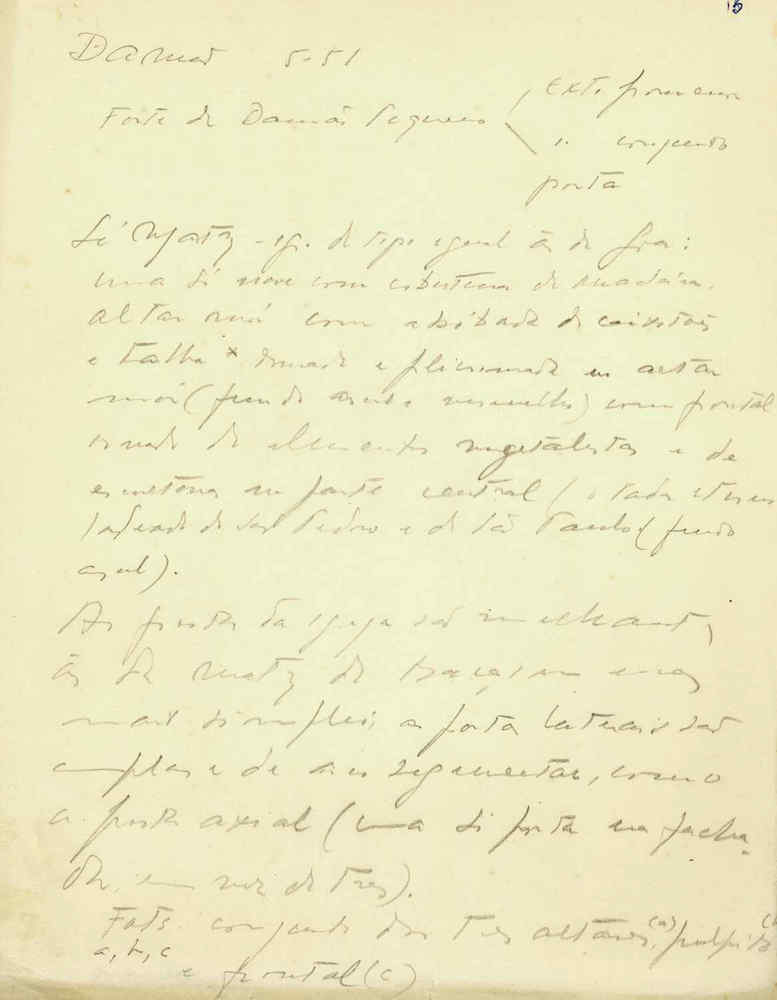 15
Damão 5-51
Forte de Damão Pequeno
Ext. pormenor
" conjunto
porta
Sé Matriz - ig. de tipo igual às de Goa:
uma só nave com cobertura de madeira.
altar mór com abóbada de caixotões
e talha dourada e policromada no altar
mór (fundo azul e vermelho) com frontal
ornado de elementos vegetalistas e de
na parte central
ladeado de São Pedro e de São Paulo (fundo
azul).
As portas da igreja são semelhantes
às da matriz de mas
mais simples; as portas laterais são
amplas e de arco segmentar, como
a porta axial (uma só porta na facha-
da, em vez de tres).
Foto conjunto dos tres altares (a), pulpito (b)
a, b, c
e frontal (c)